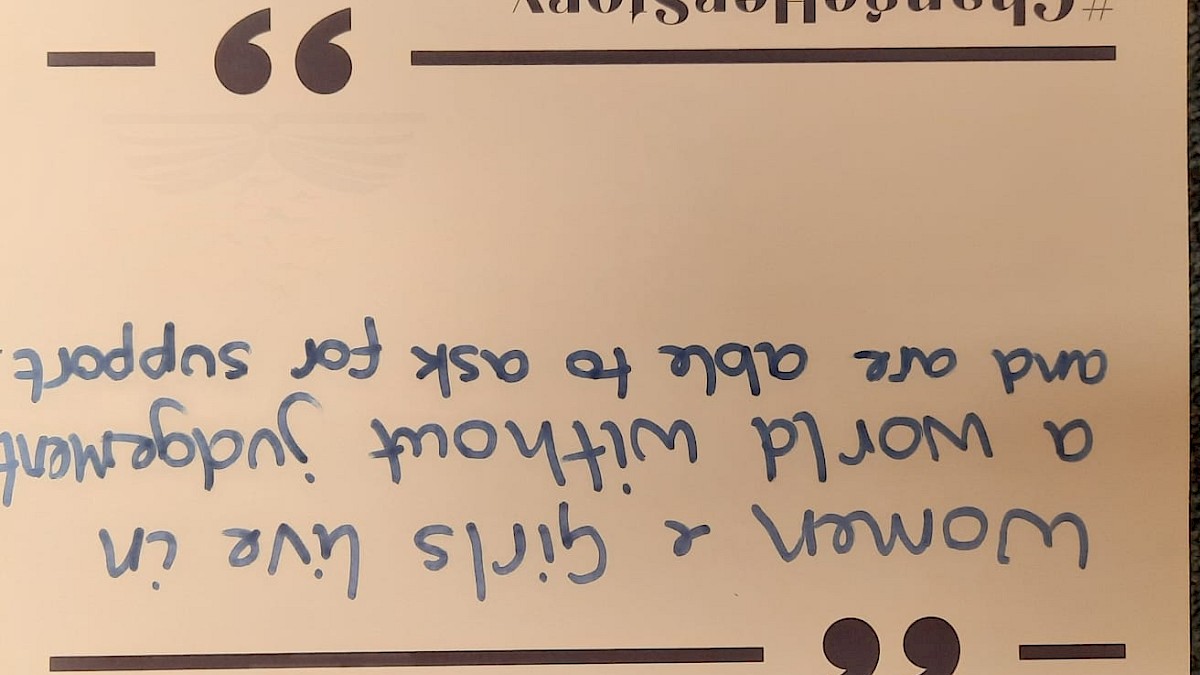 Women & Girls live in
a world without judgement
and are able to ask for support.
#ChangeHerStory